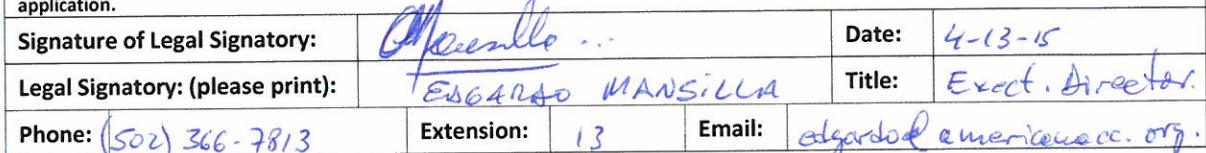 application.
Signature of Legal Signatory: Mansilla ... Date: 4-13-15
Legal Signatory: (please print): EDGARDO MANSILLA Title: Exect. Director.
Phone: (502) 366-7813 Extension: 13 Email: edgardo@americanacc.org.